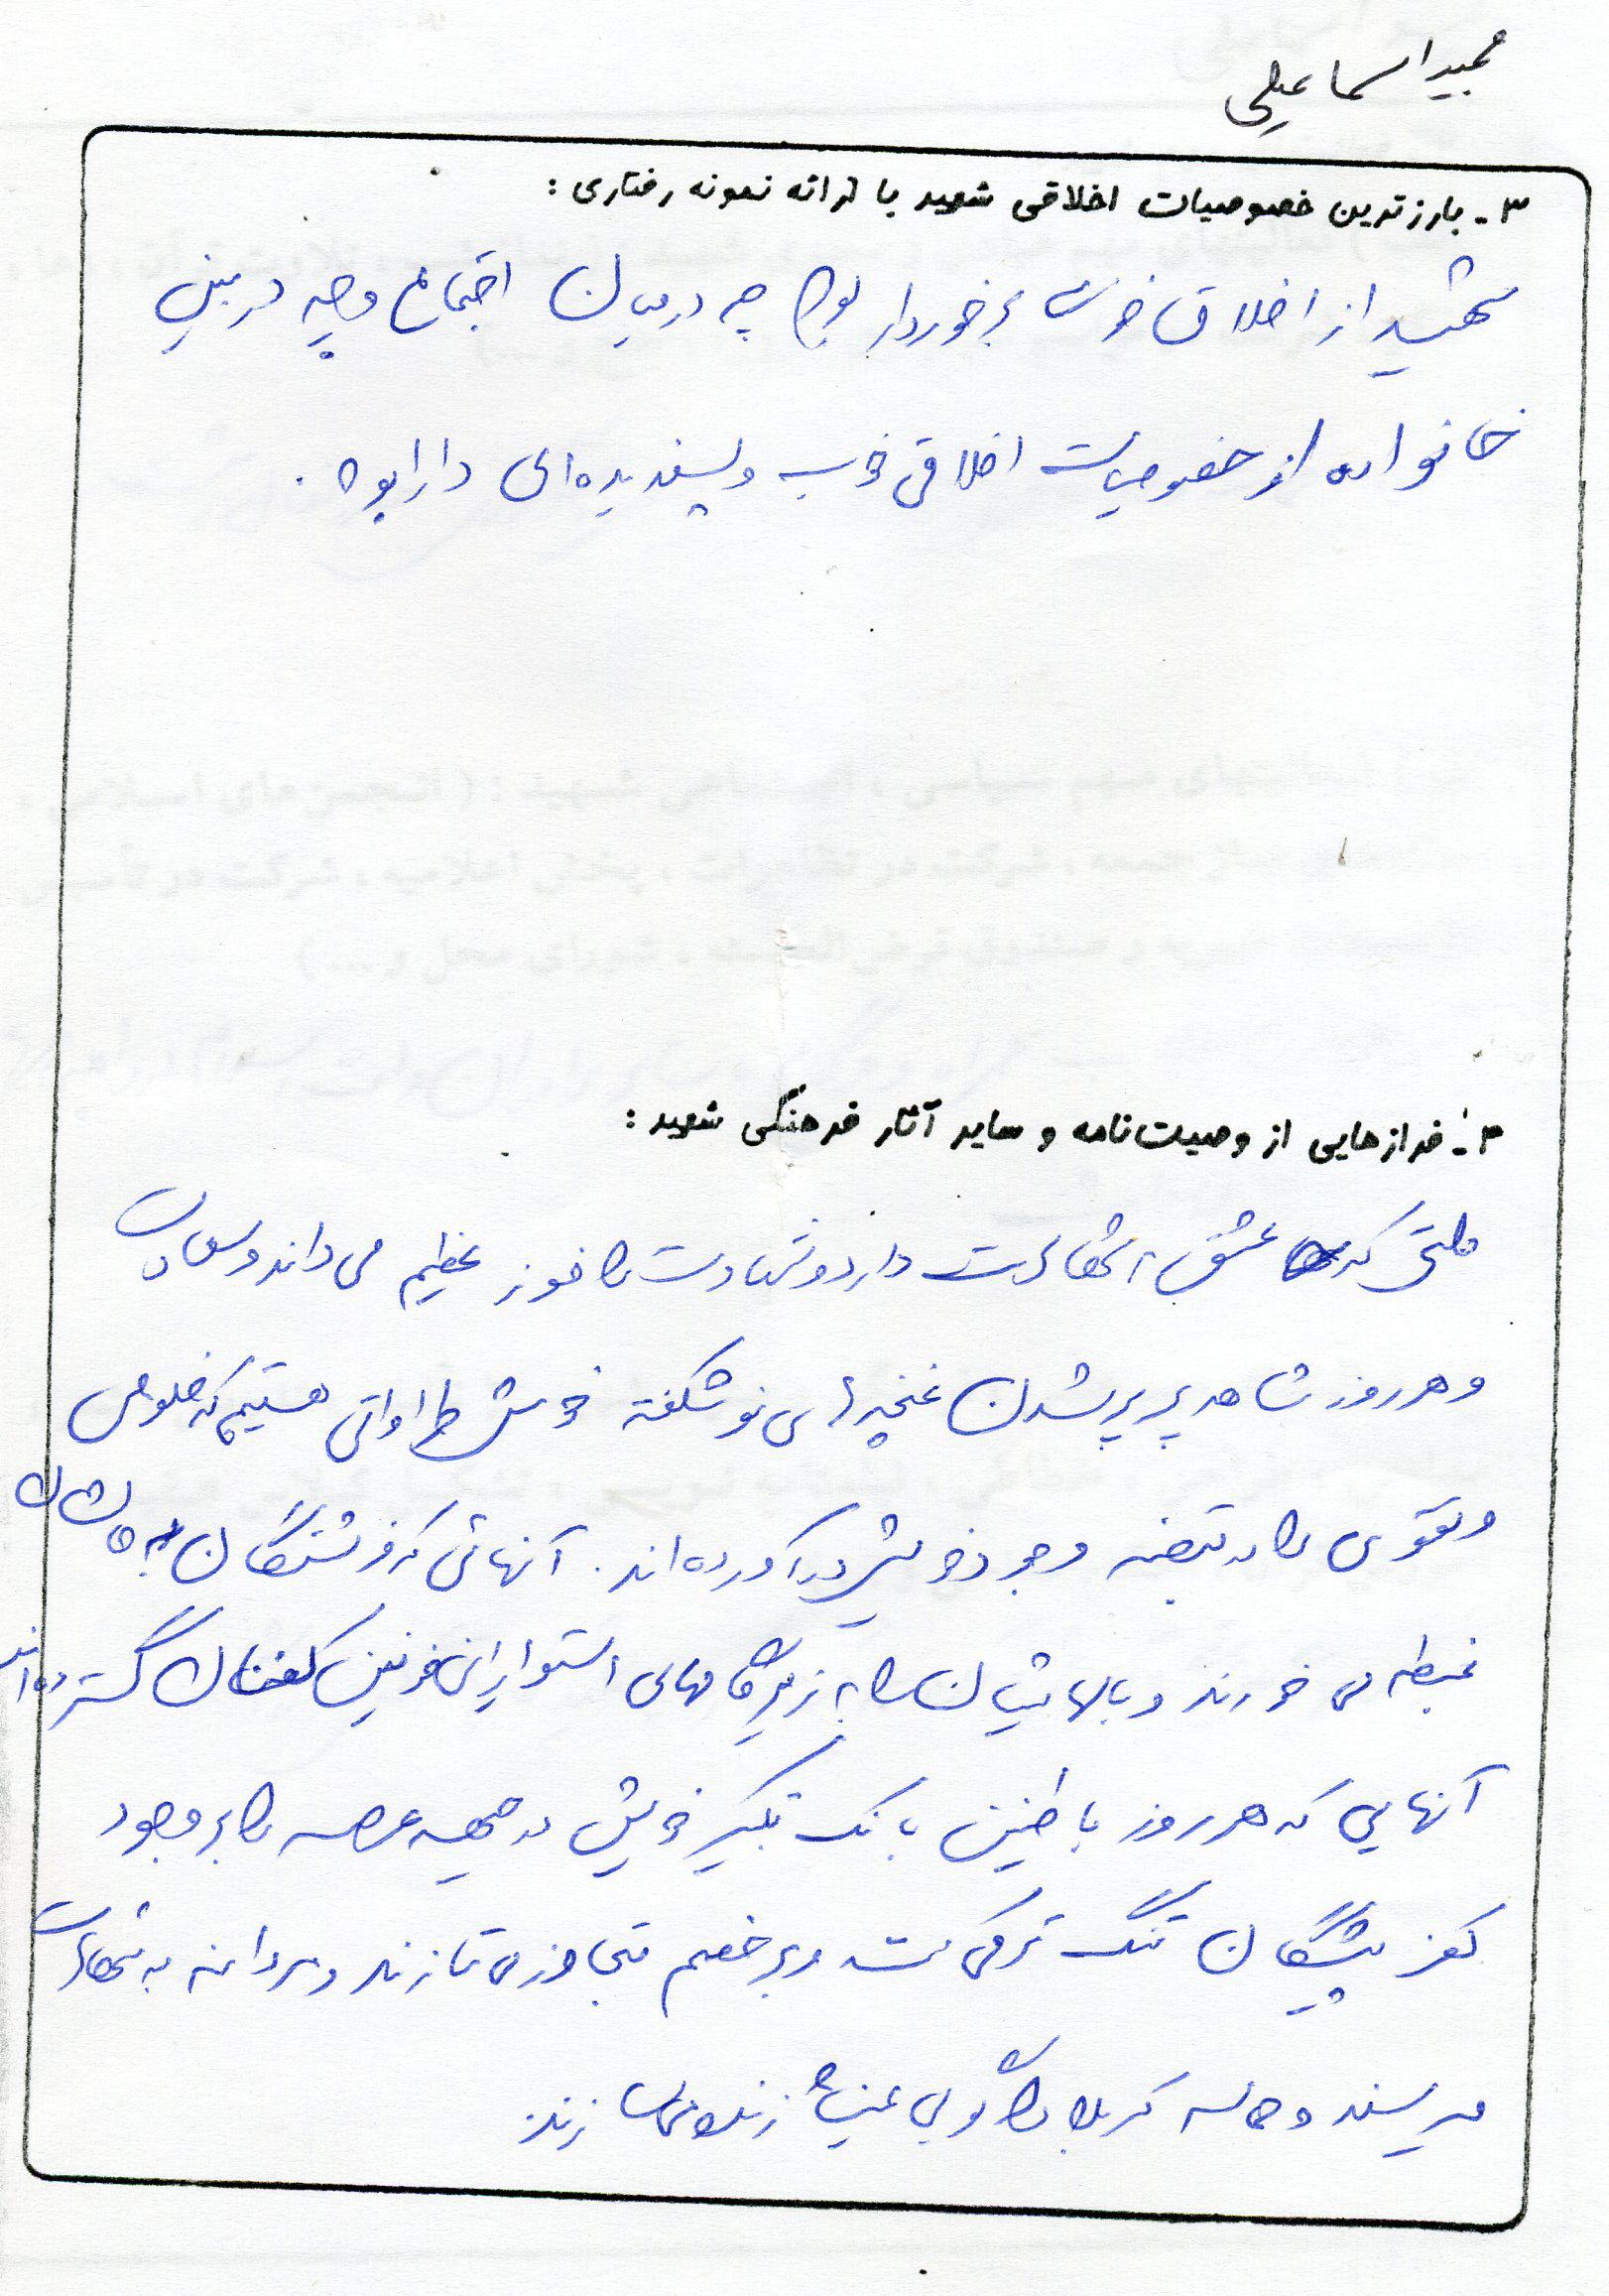 مجید اسماعیلی
۳- بارزترین خصوصیات اخلاقی شهید با ارائه نمونه رفتاری :
شهید از اخلاق خوبی برخوردار بود چه در میان اجتماع و چه در بین
خانواده از خصوصیات اخلاقی خوب و پسندیده‌ای دارا بود .
۴- فرازهایی از وصیت‌نامه و سایر آثار فرهنگی شهید :
ملتی که عشق به شهادت دارد و شهادت را فوز عظیم می‌داند و سعادت
و هر روز شاهد پرپر شدن غنچه‌های نوشکفته خویش
هستیم که خلوص
و تقوی را در قبضه وجود خویش درآورده‌اند . آنهائی که فرشتگان به آنان
غبطه می‌خورند و بالهایشان را به زیر گامهای استوار این خونین کفنان گسترده‌اند
آنهایی که هر روز با طنین بانگ تکبیر خویش در جبهه عرصه را بر وجود
کفر پیشگان تنگ‌تر می‌کنند و بر خصم متجاوز می‌تازند و مردانه به شهادت
میرسند و حماسه کربلا را
زنده می‌سازند.